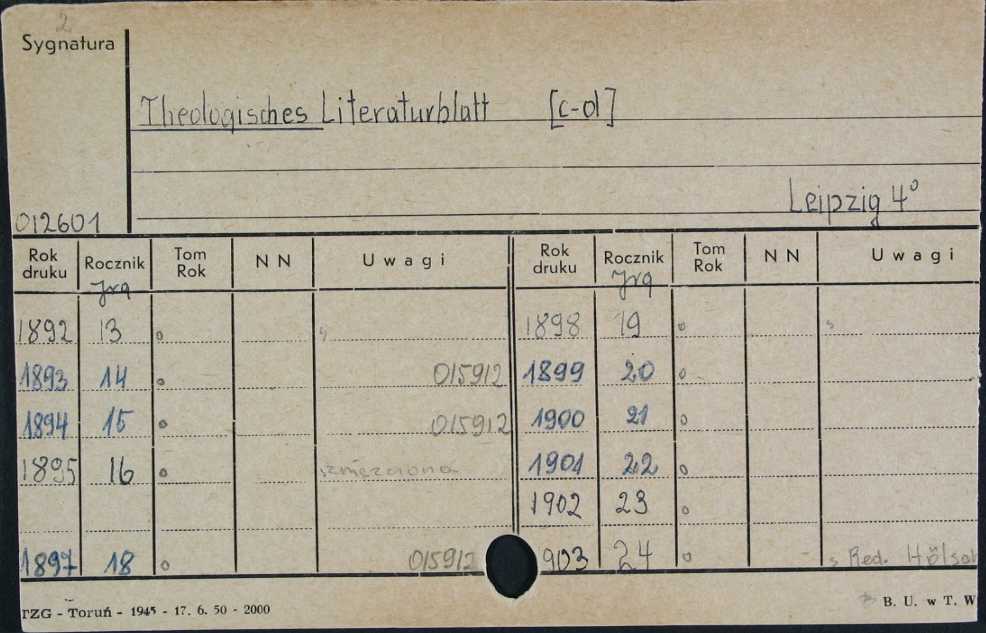 2
Sygnatura
Theologisches Literaturblatt [c-d]
Leipzig 4°
012601
Rok druku Rocznik Jrg Tom Rok NN Uwagi Rok druku Rocznik Jrg Tom Rok NN Uwagi
1892 13 ° 1898 19 °
1893 14 ° 015912 1899 20 °
1894 15 ° 015912 1900 21 °
1895 16 ° 1901 22 °
1902 23 °
1897 18 ° 015912 1903 24 ° Red.
TZG - Toruń - 1945 - 17. 6. 50 - 2000 B. U. w T. W